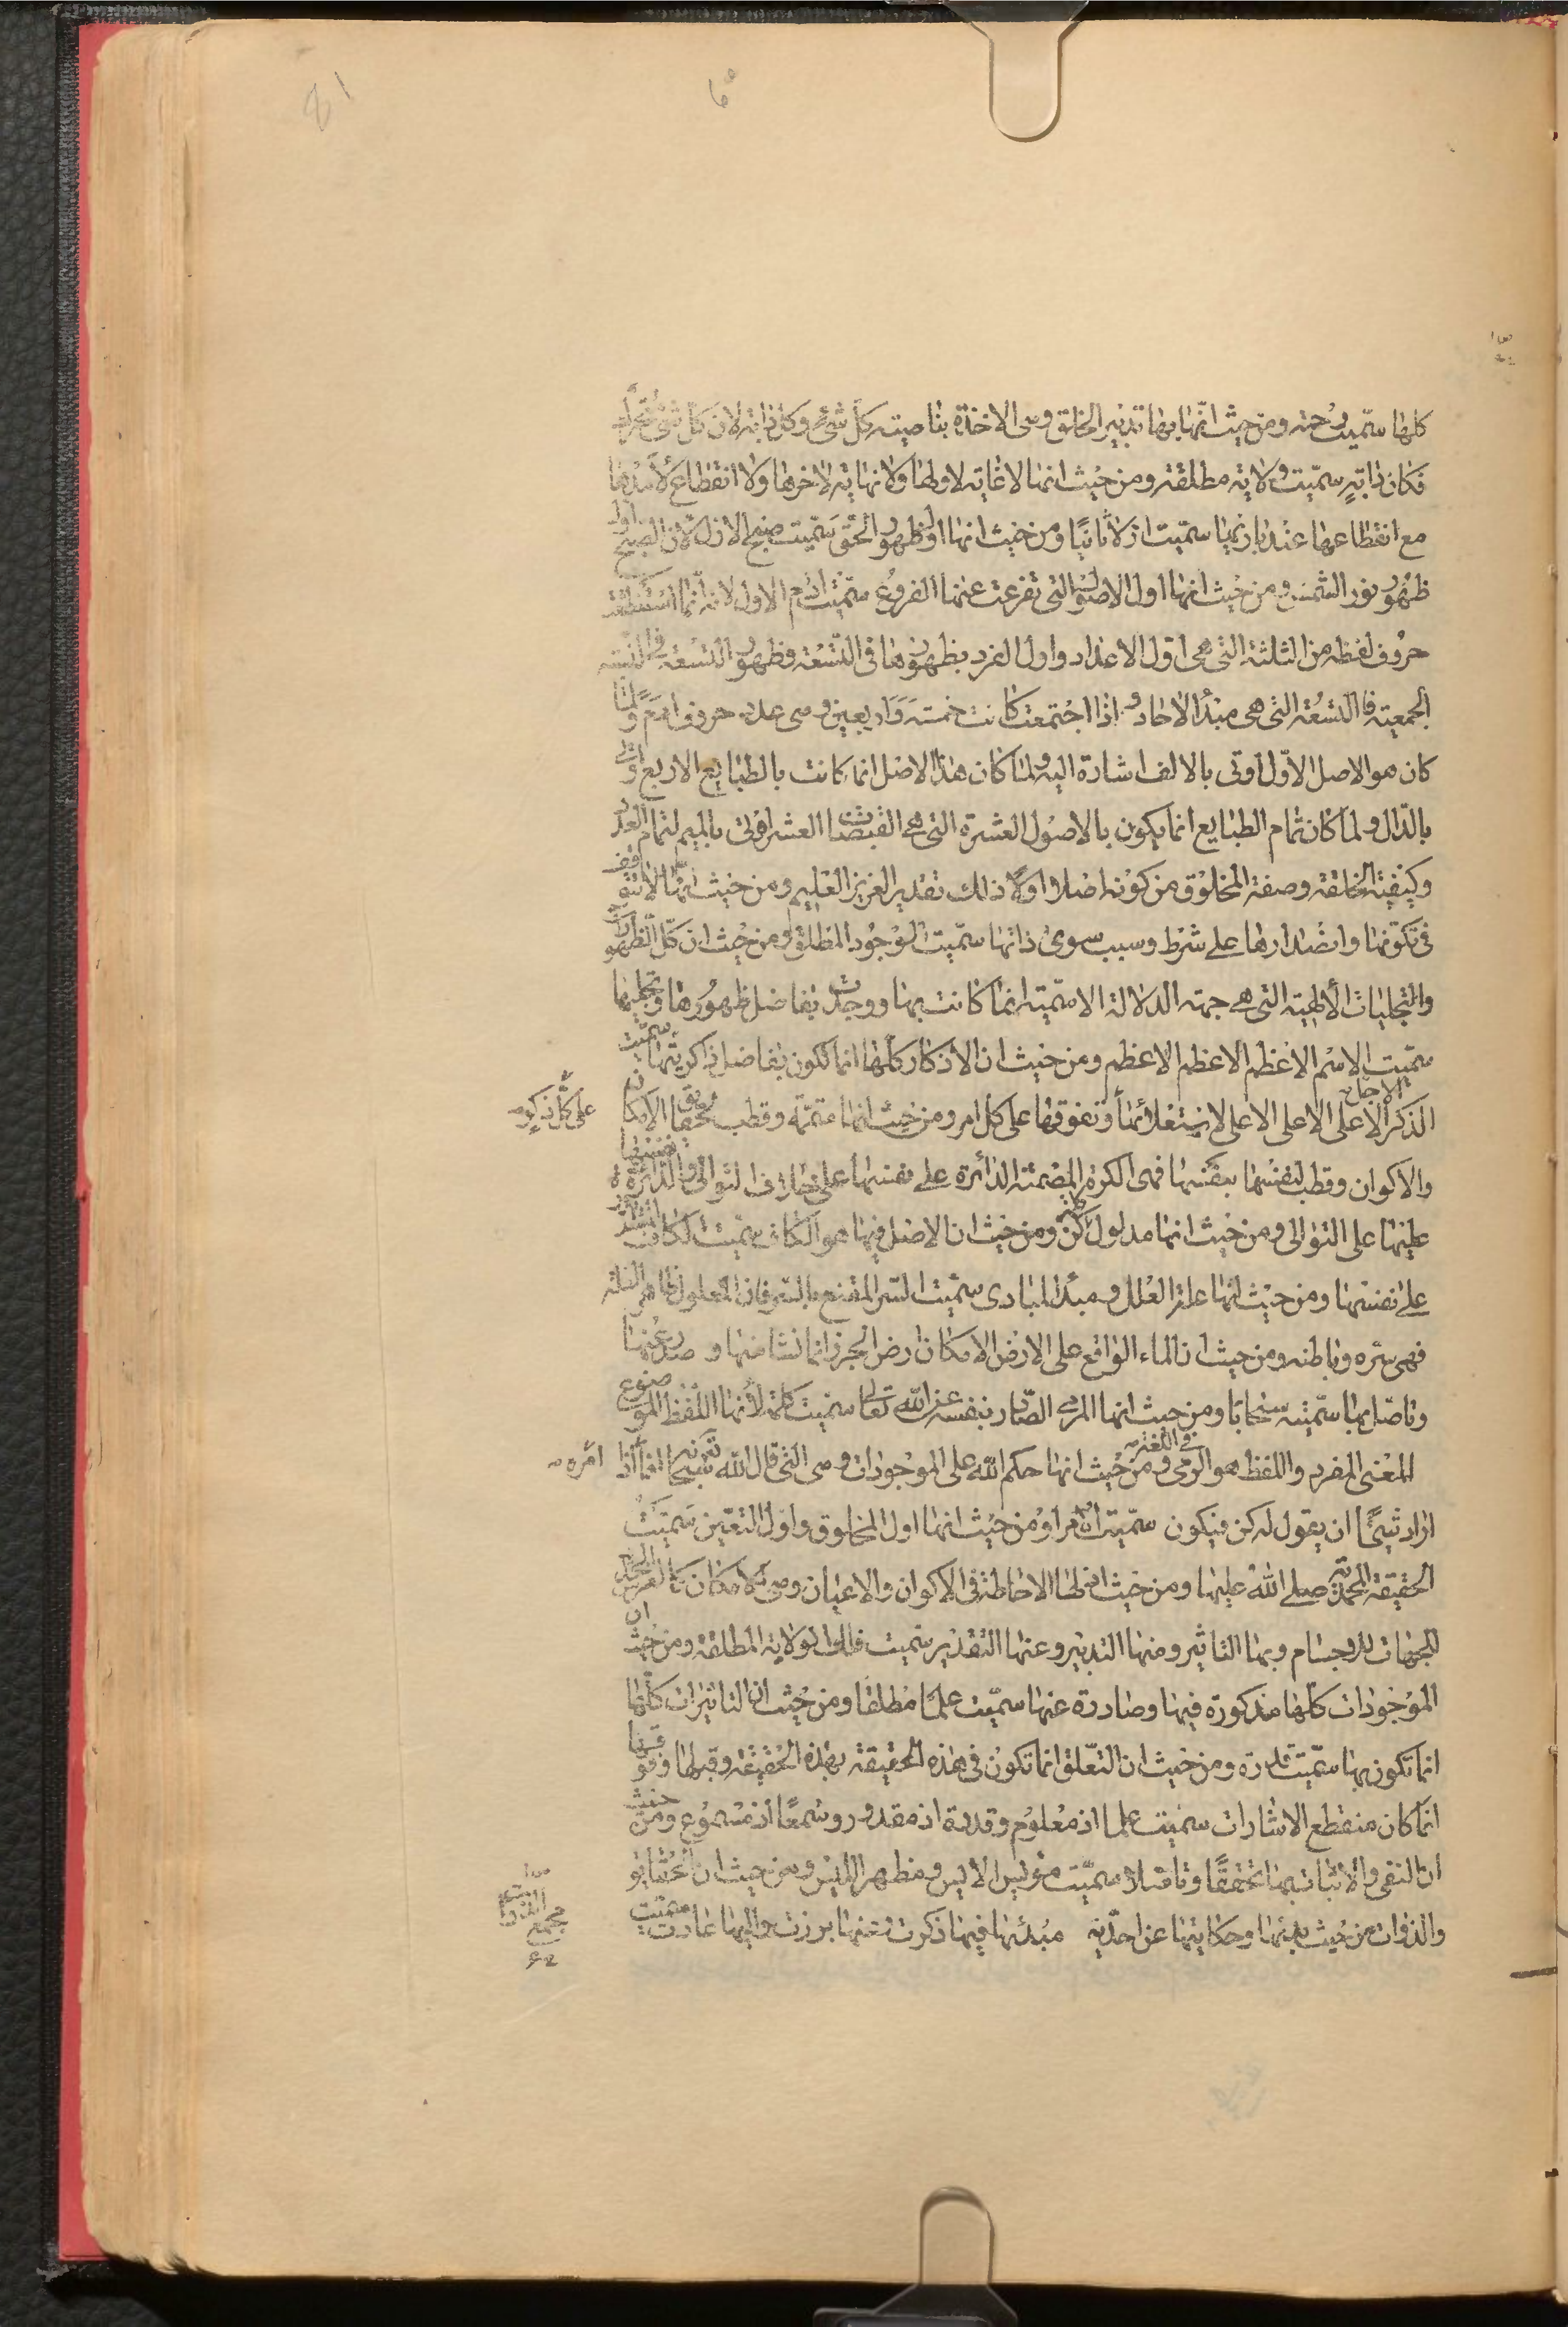 كلها سمّيت رحمة ومن حيث انّها بها تدبير الخلق وهي الاخذة بناصية كل شيء وكل دابة لان كل شيء متحرك
فكان دابةٍ سمّيت ولاية مطلقة ومن حيث انها لا غاية لاولها ولا نهاية لاخرها ولا انقطاع لامدها
مع انقطاعها عند بارئها سمّيت ازلا ثانيًا ومن حيث انها اول ظهور الحق سمّيت صبح الازل لان الصبح اول
ظهور نور الشمس ومن حيث انها اول الاصول التي تفرعت عنها الفروع سمّيت ادم الاول لانه انّما استنطقت
حروف لفظه من الثلثة التي هي اول الاعداد واول الفرد بظهورها في التسعة وظهور التسعة في النسبة
الجمعية فالتسعة التي هي مبدأ الاحاد اذا اجتمعت كانت خمسة واربعين وهي عدد حروف ادم ولمّا
كان هو الاصل الاوّل اوتى بالالف اشارة اليه ولمّا كان هذا الاصل انما كانت بالطبايع الاربع اوتى
بالدّال ولما كان تمام الطبايع انما يكون بالاصول العشرة التي هي القبضات العشر اوتى بالميم لتمام العدد
وكيفية الخلقة وصفة المخلوق من كونه اصلا اولا ذلك تقدير العزيز العليم ومن حيث انها لا تتوقف
في تكوّنها وانصدارها على شرط وسبب سوى ذاتها سمّيت الوجود المطلق ومن حيث ان كل الظهورات
والتجليات الألهية التي هي جهة الدلالة الاسمّية انما كانت بها ووجدت بفاضل ظهورها وتجليها
سمّيت الاسم الاعظم الاعظم الاعظم ومن حيث ان الاذكار كلها انما تكون بفاضل ذاكريتها سمّيت
الذكر الاعلى الاعلى الاعلى الاجل لاستعلائها وتفوقها على كل امر ومن حيث انها متممّة وقطب تحقق الامكان
على كل ذكر
والاكوان وقطب لنفسها بنفسها فهي الكرة المصمتة الدائرة على نفسها على خلاف التوالي والدائرة نفسها
عليها على التوالي ومن حيث انها مدلول كلمة كن ومن حيث ان الاصل فيها هو الكاف سمّيت الكاف المستديرة
على نفسها ومن حيث انها علة العلل ومبدأ المبادي سمّيت السّر المقنع بالسّر فان المعلول ظاهر العلة
فهي سّره وباطنه ومن حيث ان الماء الواقع على الارض الامكان ارض الجرز انما نشا منها و صدر عنها
وتاصّل بها سمّيته سحابا ومن حيث انها المرمى الصّادر بنفسه عن الله تعالى سمّيت كلمة لأنها اللفظ الموضوع
المعنى المفرد واللفظ هو الرمي في اللغة ومن حيث انها حكم الله على الموجودات وهي التي قال الله سبحانه انما امره اذا
اراد شيئًا ان يقول له كن فيكون سمّيت امرا ومن حيث انها اول المخلوق واوّل التعيّن سمّيت
الحقيقة المحمدية صلى الله عليها ومن حيث ان لها الاحاطة في الاكوان والاعيان وهي للامكان كالعرش المحدد
للجهات للاجسام وبها التاثير ومنها التدبير وعنها التقدير سمّيت فلك الولاية المطلقة ومن حيث ان
الموجودات كلها مذكورة فيها وصادرة عنها سمّيت علمًا مطلقا ومن حيث ان التاثيرات كلها
انما تكون بها سمّيت قدرة ومن حيث ان التعّلق انما تكون في هذه الحقيقة بهذه الحقيقة وقبلها وفوقها
انما كان منقطع الاشارات سمّيت علما اذ معلوم وقدرة اذ مقدور وسمعًا اذ مسموع ومن حيث
ان النفي والاثبات بها تحققا وتاصّلا سمّيت مؤيس الايس ومظهر الليس ومن حيث ان الحقايق
والذوات من حيث بدئها وحكايتها عن احدّية مبدئها فيها ذكرت وعنها برزت واليها عادت سمّيت